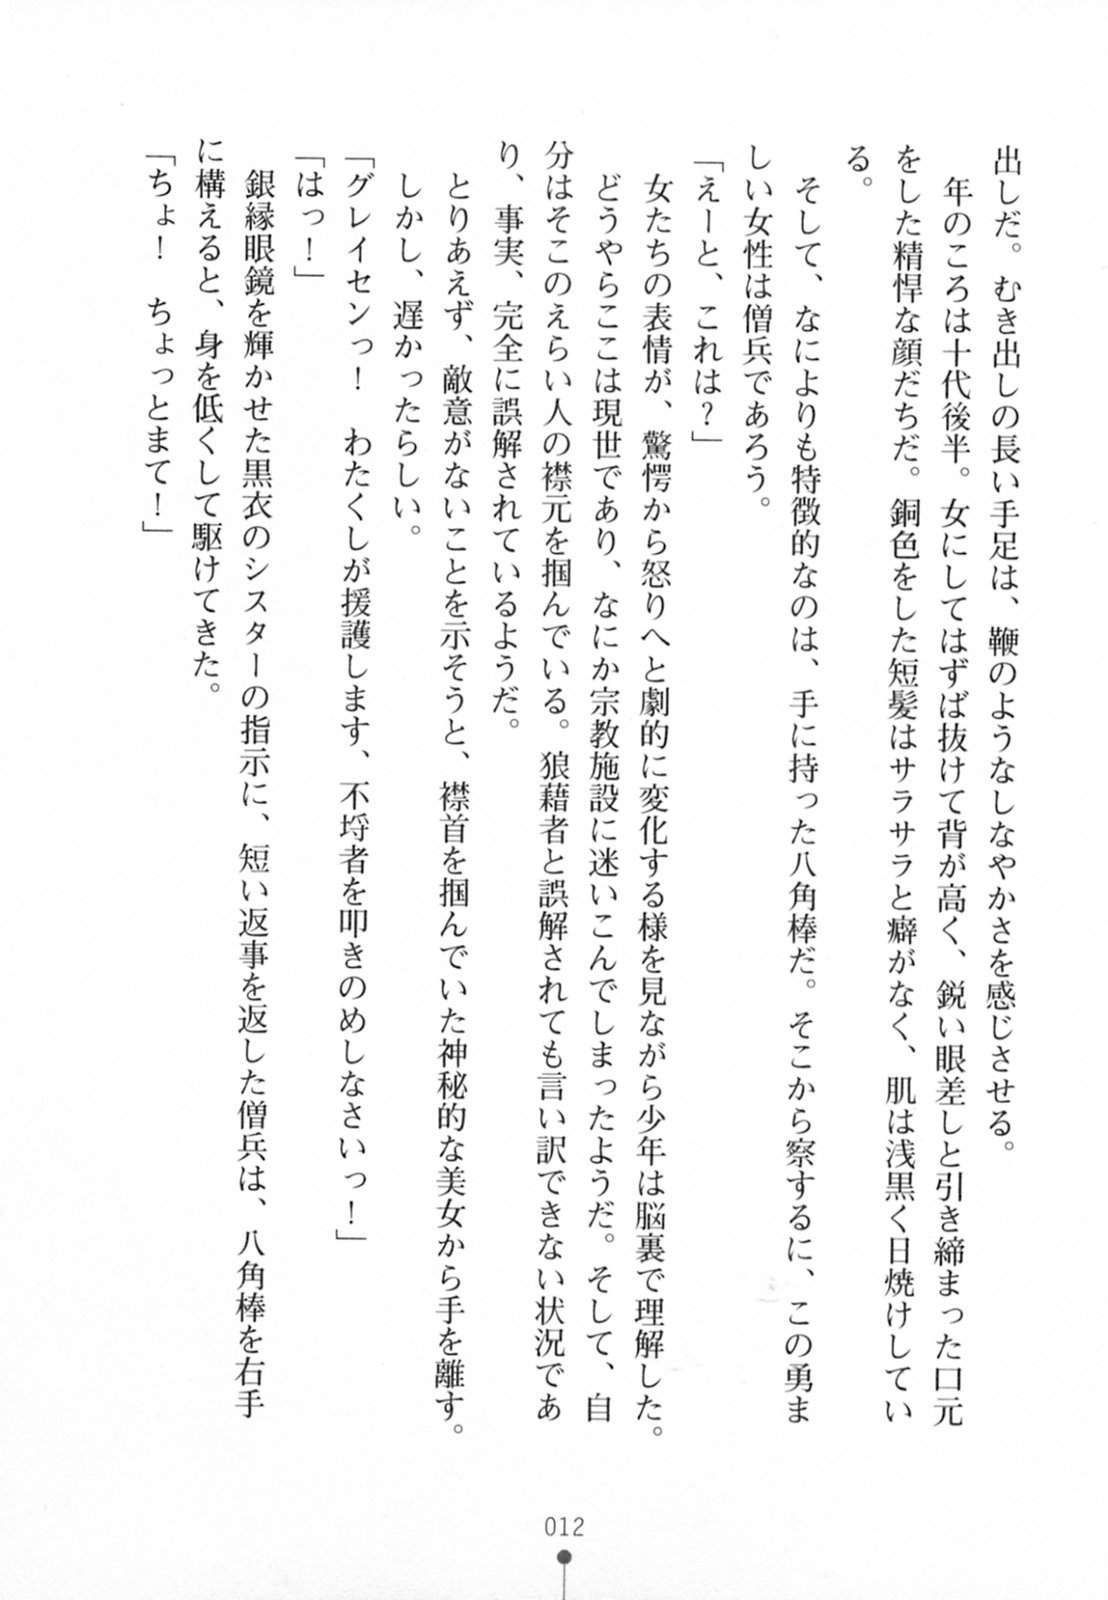 出しだ。むき出しの長い手足は、鞭のようなしなやかさを感じさせる。
年のころは十代後半。女にしてはずば抜けて背が高く、鋭い眼差しと引き締まった口元
をした精悍な顔だちだ。銅色をした短髪はサラサラと癖がなく、肌は浅黒く日焼けしてい
る。
そして、なによりも特徴的なのは、手に持った八角棒だ。そこから察するに、この勇ま
しい女性は僧兵であろう。
「えーと、これは？」
女たちの表情が、驚愕から怒りへと劇的に変化する様を見ながら少年は脳裏で理解した。
どうやらここは現世であり、なにか宗教施設に迷いこんでしまったようだ。そして、自
分はそこのえらい人の襟元を掴んでいる。狼藉者と誤解されても言い訳できない状況であ
り、事実、完全に誤解されているようだ。
とりあえず、敵意がないことを示そうと、襟首を掴んでいた神秘的な美女から手を離す。
しかし、遅かったらしい。
「グレイセンっ！　わたくしが援護します、不埒者を叩きのめしなさいっ！」
「はっ！」
銀縁眼鏡を輝かせた黒衣のシスターの指示に、短い返事を返した僧兵は、八角棒を右手
に構えると、身を低くして駆けてきた。
「ちょ！　ちょっとまて！」
012